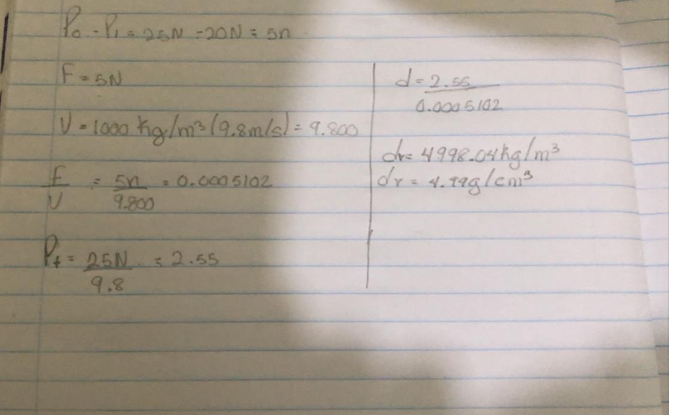 P₀ - P₁ = 25N - 20N = 5n
F = 5N
V = 1000 kg/m³ (9.8m/s) = 9.800
F/V = 5n/9.800 = 0.0005102
Pt = 25N/9.8 = 2.55
d = 2.55/0.0005102
dr = 4998.04kg/m³
dr = 4.99g/cm³